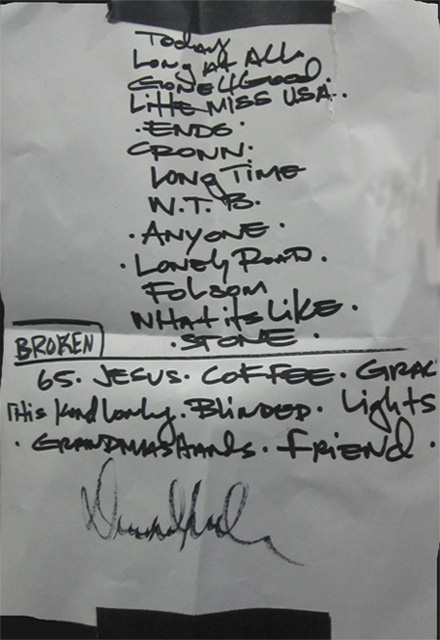 Today
Long At ALL
GONE 4 Good.
Little MISS USA..
· ENDS ·
CROWN.
LONg TIME
W.T.B.
· ANYONE ·
· LONELY ROAD.
FOLSOM
WHAt its LIKE.
BROKEN · STONE ·
65. JESUS. COFFEE. GRAC
This Kind Lonly. BLINDED. Lights
· GRANDMAS HANDS. FRIEND.